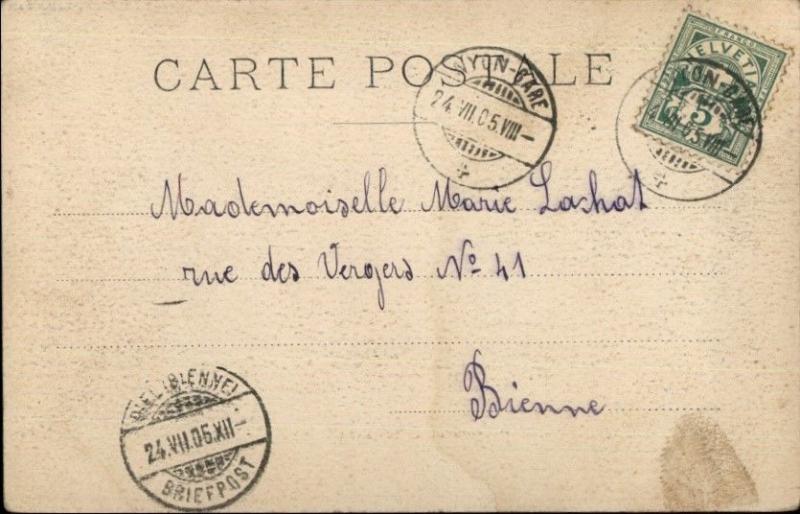 CARTE POSTALE
NYON-GARE
24.VII.05.VIII–
FRANCO
HELVETIA
5
NYON-GARE
Mademoiselle Marie Lachat
rue des Vergers No 41
Bienne
BIEL (BIENNE)
24.VII.05.XII–
BRIEFPOST